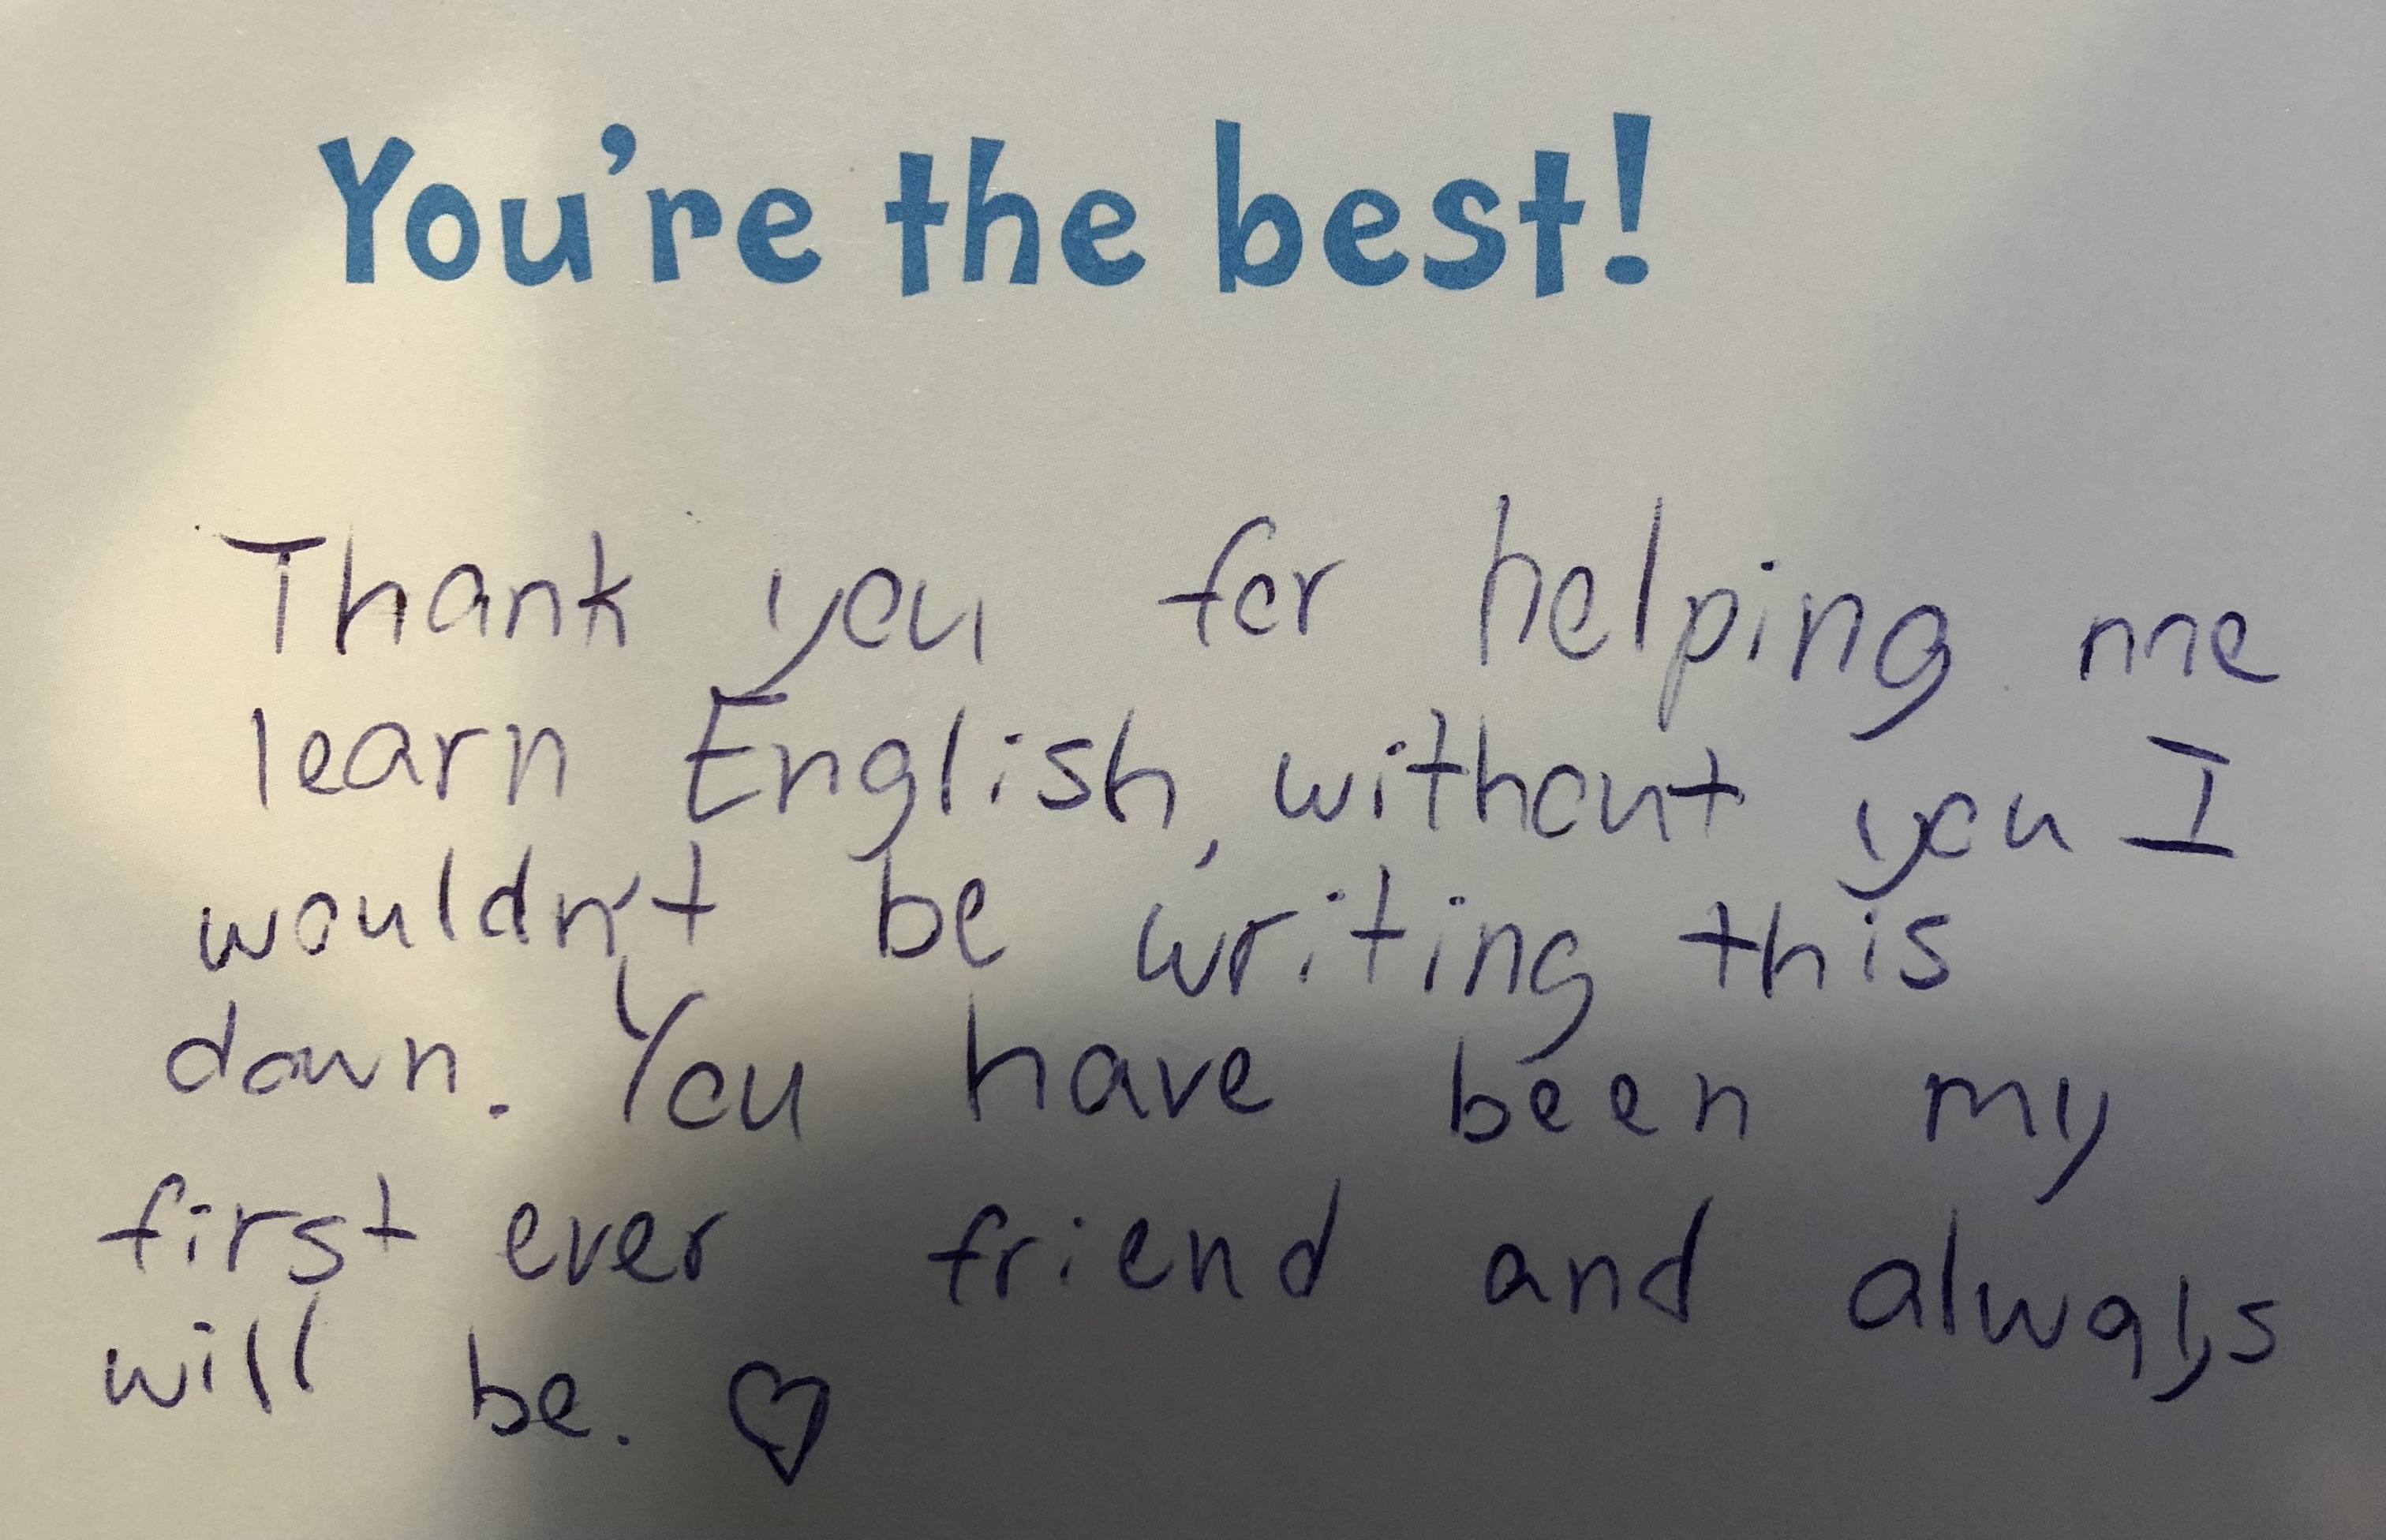 You're the best!
Thank you for helping me
learn English, without you I
wouldn't be writing this
down. You have been my
first ever friend and always
will be. ♡